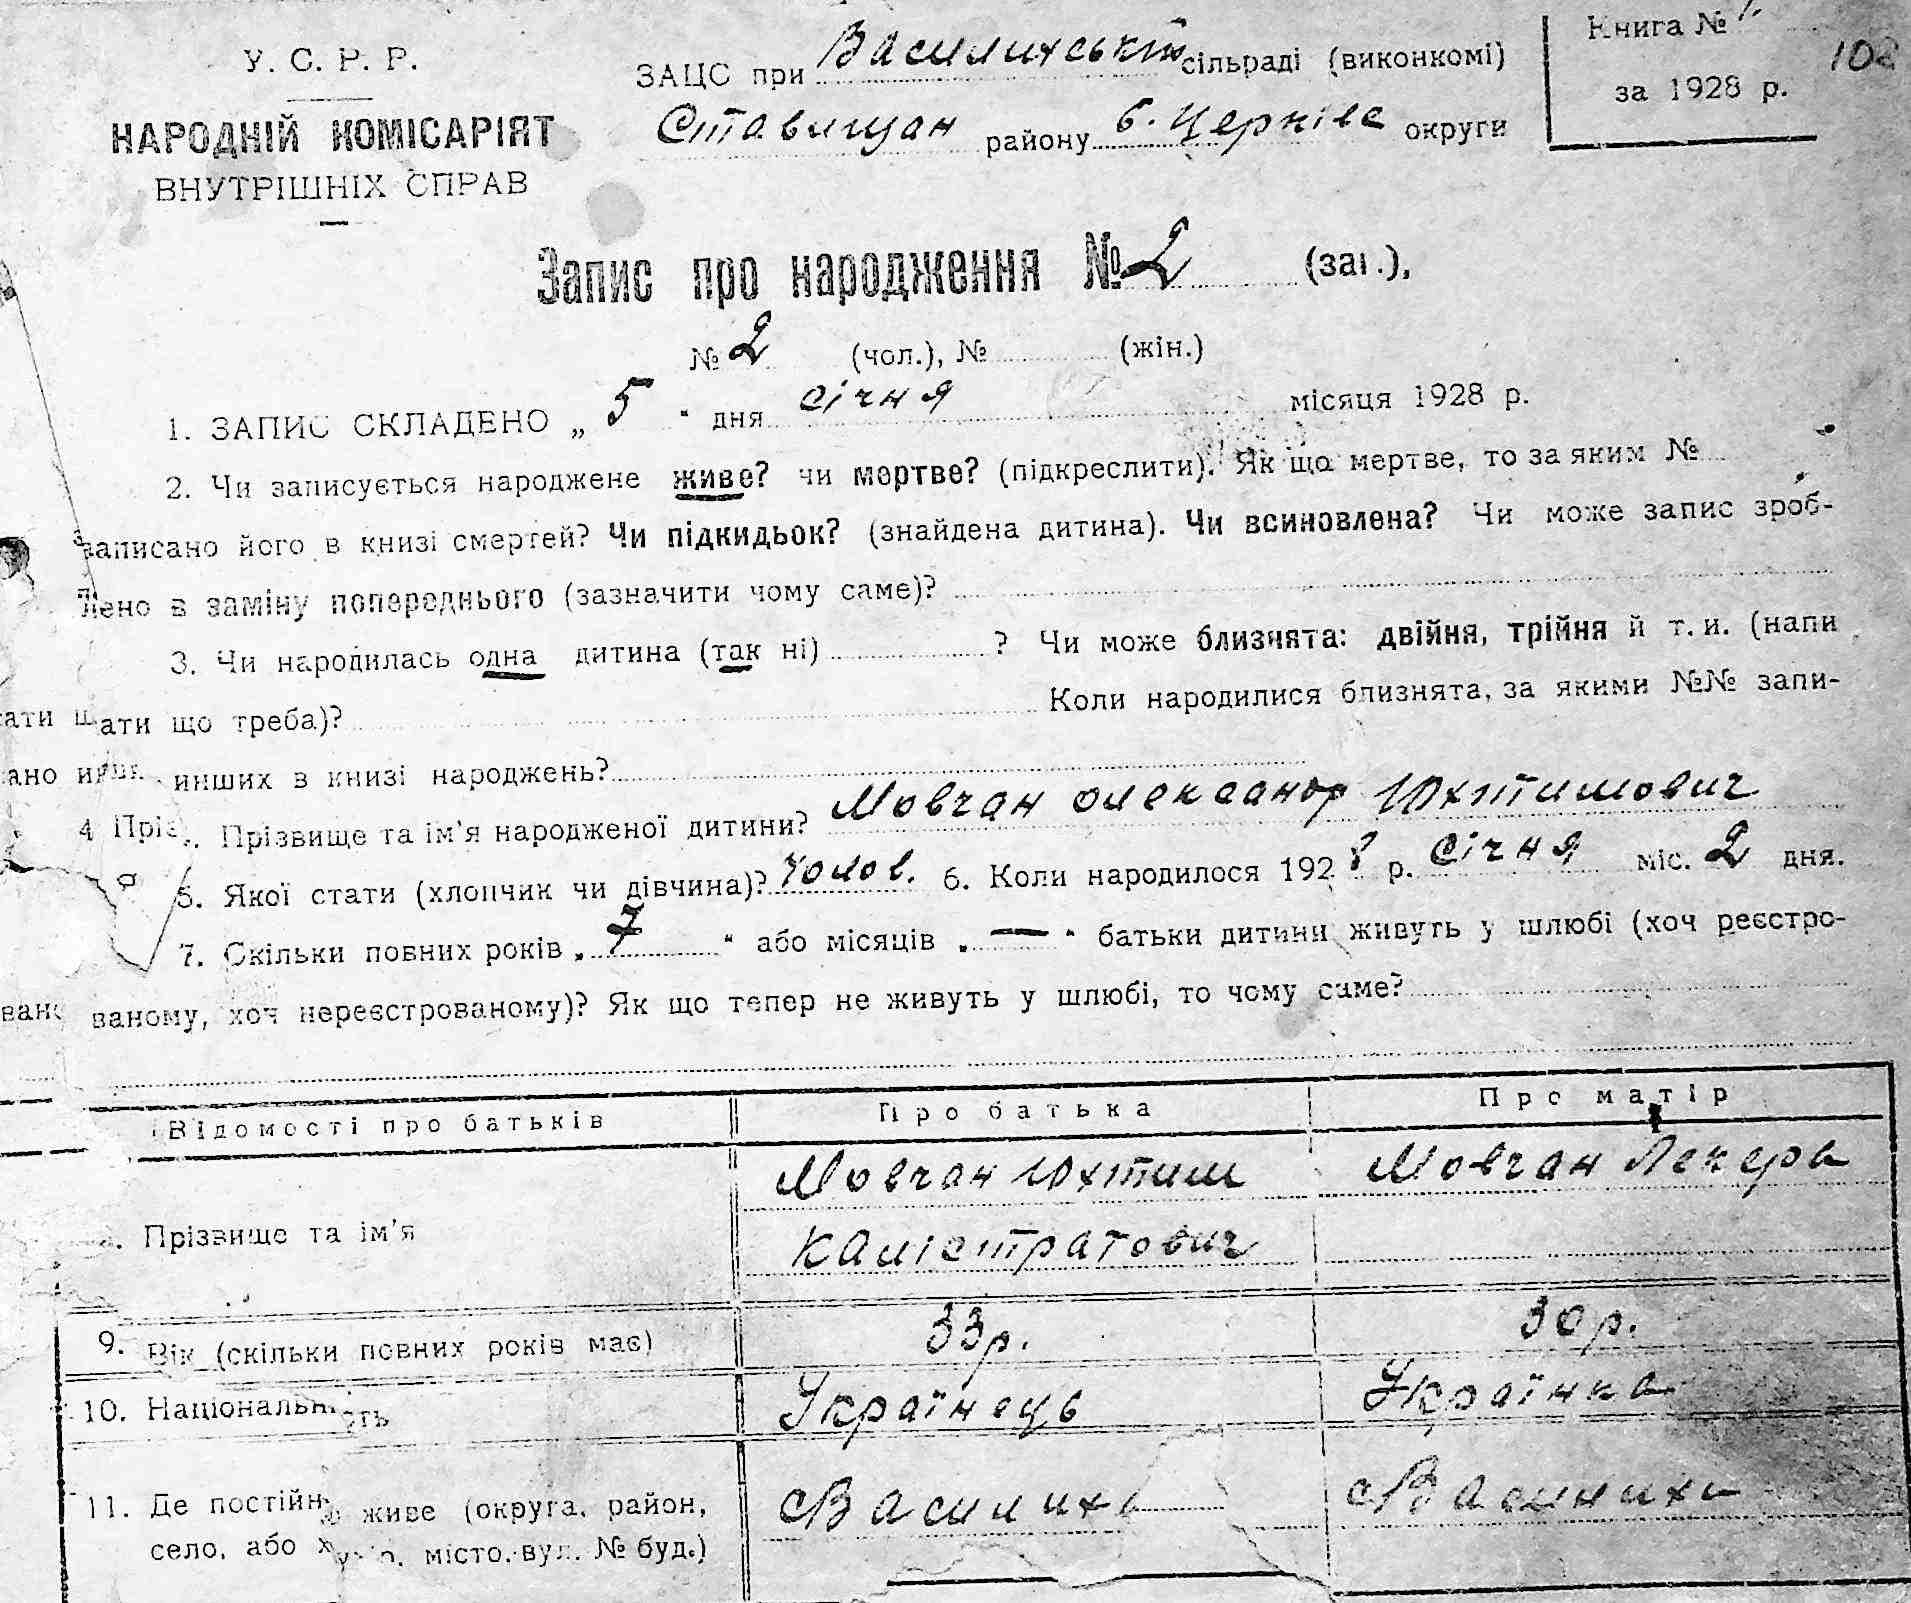 У. С. Р. Р.
НАРОДНІЙ КОМІСАРІЯТ
ВНУТРІШНІХ СПРАВ
ЗАЦС при Василихській сільраді (виконкомі)
Ставищан району б. Церківс округи
Книга №
за 1928 р.
102
Запис про народження № 2 (заг.),
№ 2 (чол.), № (жін.)
1. ЗАПИС СКЛАДЕНО „ 5 “ дня січня місяця 1928 р.
2. Чи записується народжене живе? чи мертве? (підкреслити). Як що мертве, то за яким №
записано його в книзі смертей? Чи підкидьок? (знайдена дитина). Чи всиновлена? Чи може запис зроб-
лено в заміну попереднього (зазначити чому саме)?
3. Чи народилась одна дитина (так ні) ? Чи може близнята: двійня, трійня й т. и. (напи
ати що треба)? Коли народилися близнята, за якими №№ запи-
ано инших в книзі народжень?
4 Прізвище та ім'я народженої дитини? Мовчан Олександр Юхтимович
5. Якої стати (хлопчик чи дівчина)? чолов. 6. Коли народилося 1928 р. січня міс. 2 дня.
7. Скільки повних років „ 7 “ або місяців „ — “ батьки дитини живуть у шлюбі (хоч реєстро-
ваному, хоч нереєстрованому)? Як що тепер не живуть у шлюбі, то чому саме?
Відомості про батьків Про батька Про матір
Прізвище та ім'я Мовчан Юхтим Мовчан Лекера
Калістратович
9. Вік (скільки повних років має) 33р. 30р.
10. Національність Українець Українка
11. Де постійно живе (округа, район, сВасилиха сВасилиха
село, або хутір, місто, вул. № буд.)